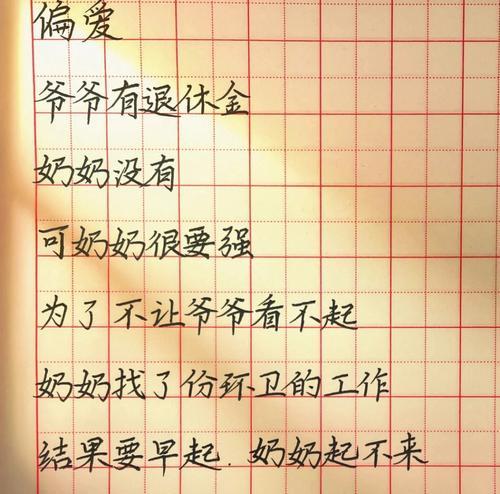 偏爱
爷爷有退休金
奶奶没有
可奶奶很要强
为了不让爷爷看不起
奶奶找了份环卫的工作
结果要早起.奶奶起不来